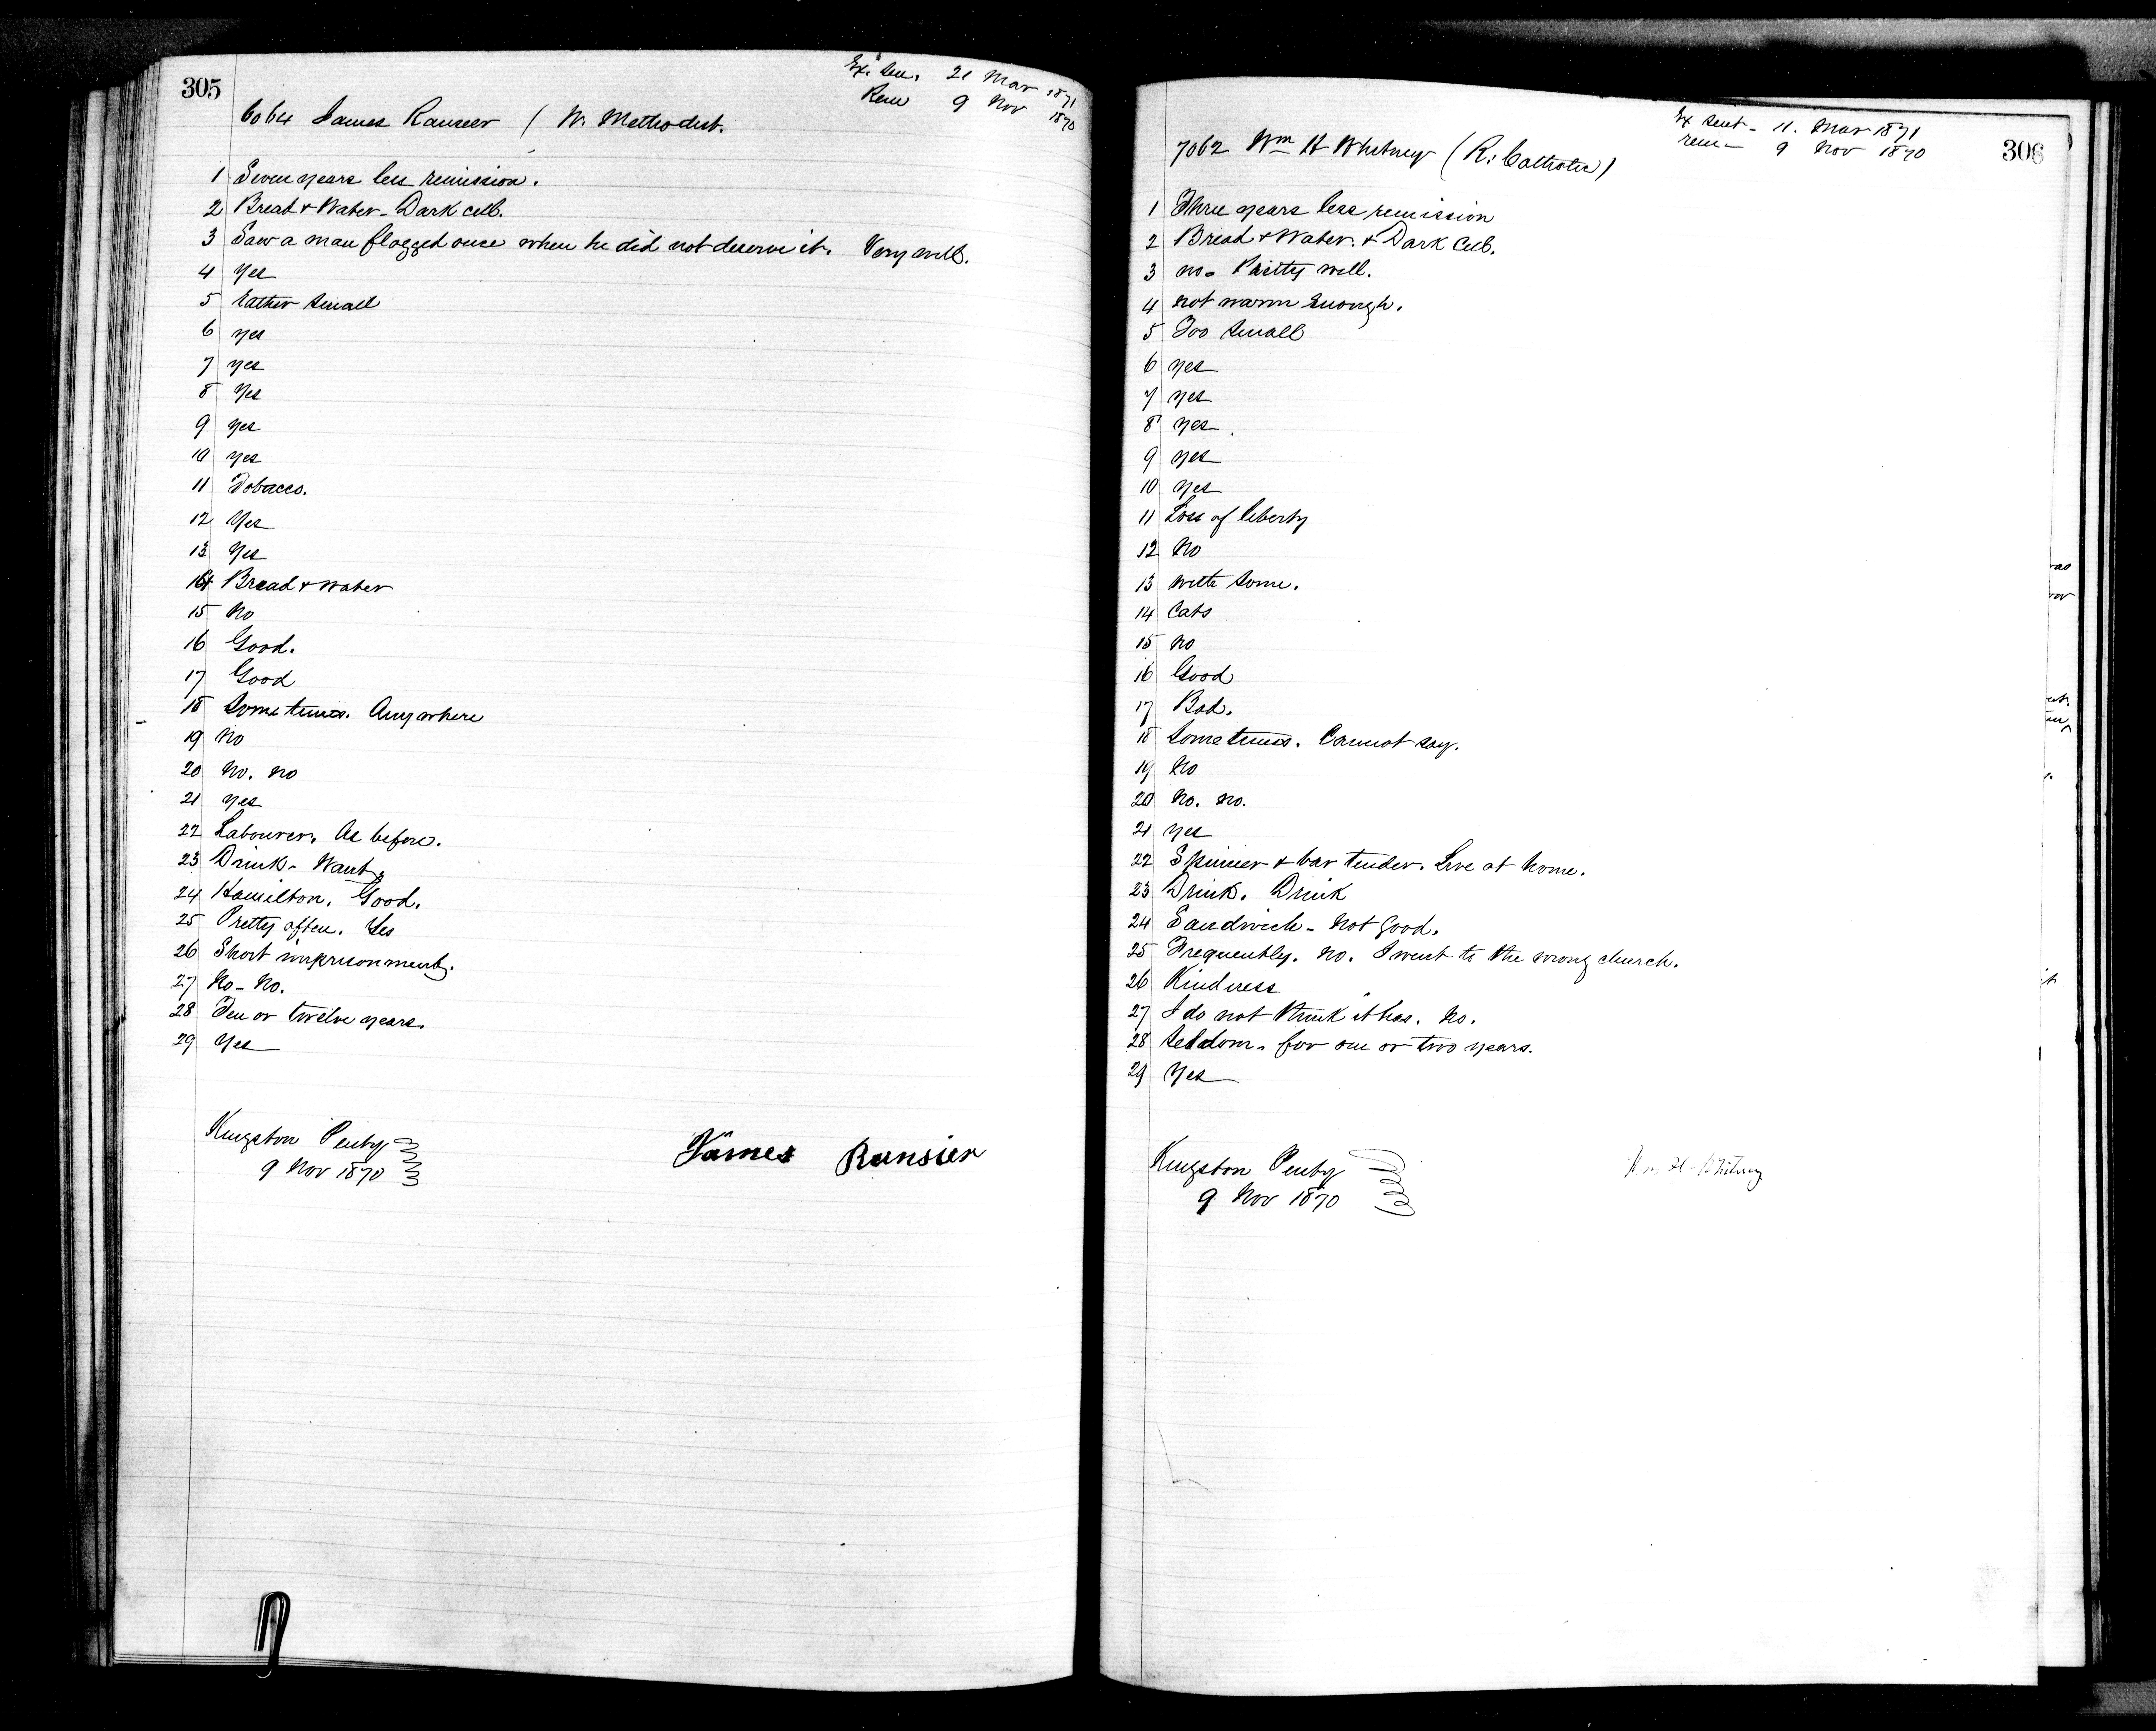 305
Ex. Sen. 21 Mar 1871
Rem 9 Nov 1870
6064 James Ranseer ( W. Methodist.
1 Seven years less remission.
2 Bread & Water - Dark cell.
3 Saw a man flogged once when he did not deserve it. Very well.
4 Yes
5 Rather small
6 yes
7 yes
8 Yes
9 yes
10 yes
11 Tobacco.
12 Yes
13 Yes
14 Bread & water
15 No
16 Good.
17 Good
18 Sometimes. Anywhere
19 No
20 No. no
21 yes
22 Labourer. As before.
23 Drink - Want.
24 Hamilton. Good.
25 Pretty often. Yes
26 Short imprisonment.
27 No - No.
28 Ten or twelve years.
29 Yes
Kingston Penty
9 Nov 1870
James Ransier
306
Ex Sent - 11. Mar 1871
rem - 9 Nov 1870
7062 Wm H Whitney (R. Catholic)
1 Three years less remission
2 Bread & Water. & Dark Cell.
3 no - Pretty well.
4 not warm enough.
5 Too small
6 yes
7 yes
8 yes.
9 yes
10 yes
11 Loss of liberty
12 No
13 with some.
14 Cats
15 no
16 Good
17 Bad.
18 Sometimes. Cannot say.
19 No
20 No. no.
21 yes
22 Spinner & bar tender. Live at home.
23 Drink. Drink
24 Sandwich - Not good.
25 Frequently. No. I went to the wrong church.
26 Kindness
27 I do not think it has. No.
28 Seldom - for one or two years.
29 Yes
Kingston Penty
9 Nov 1870
Wm H Whitney